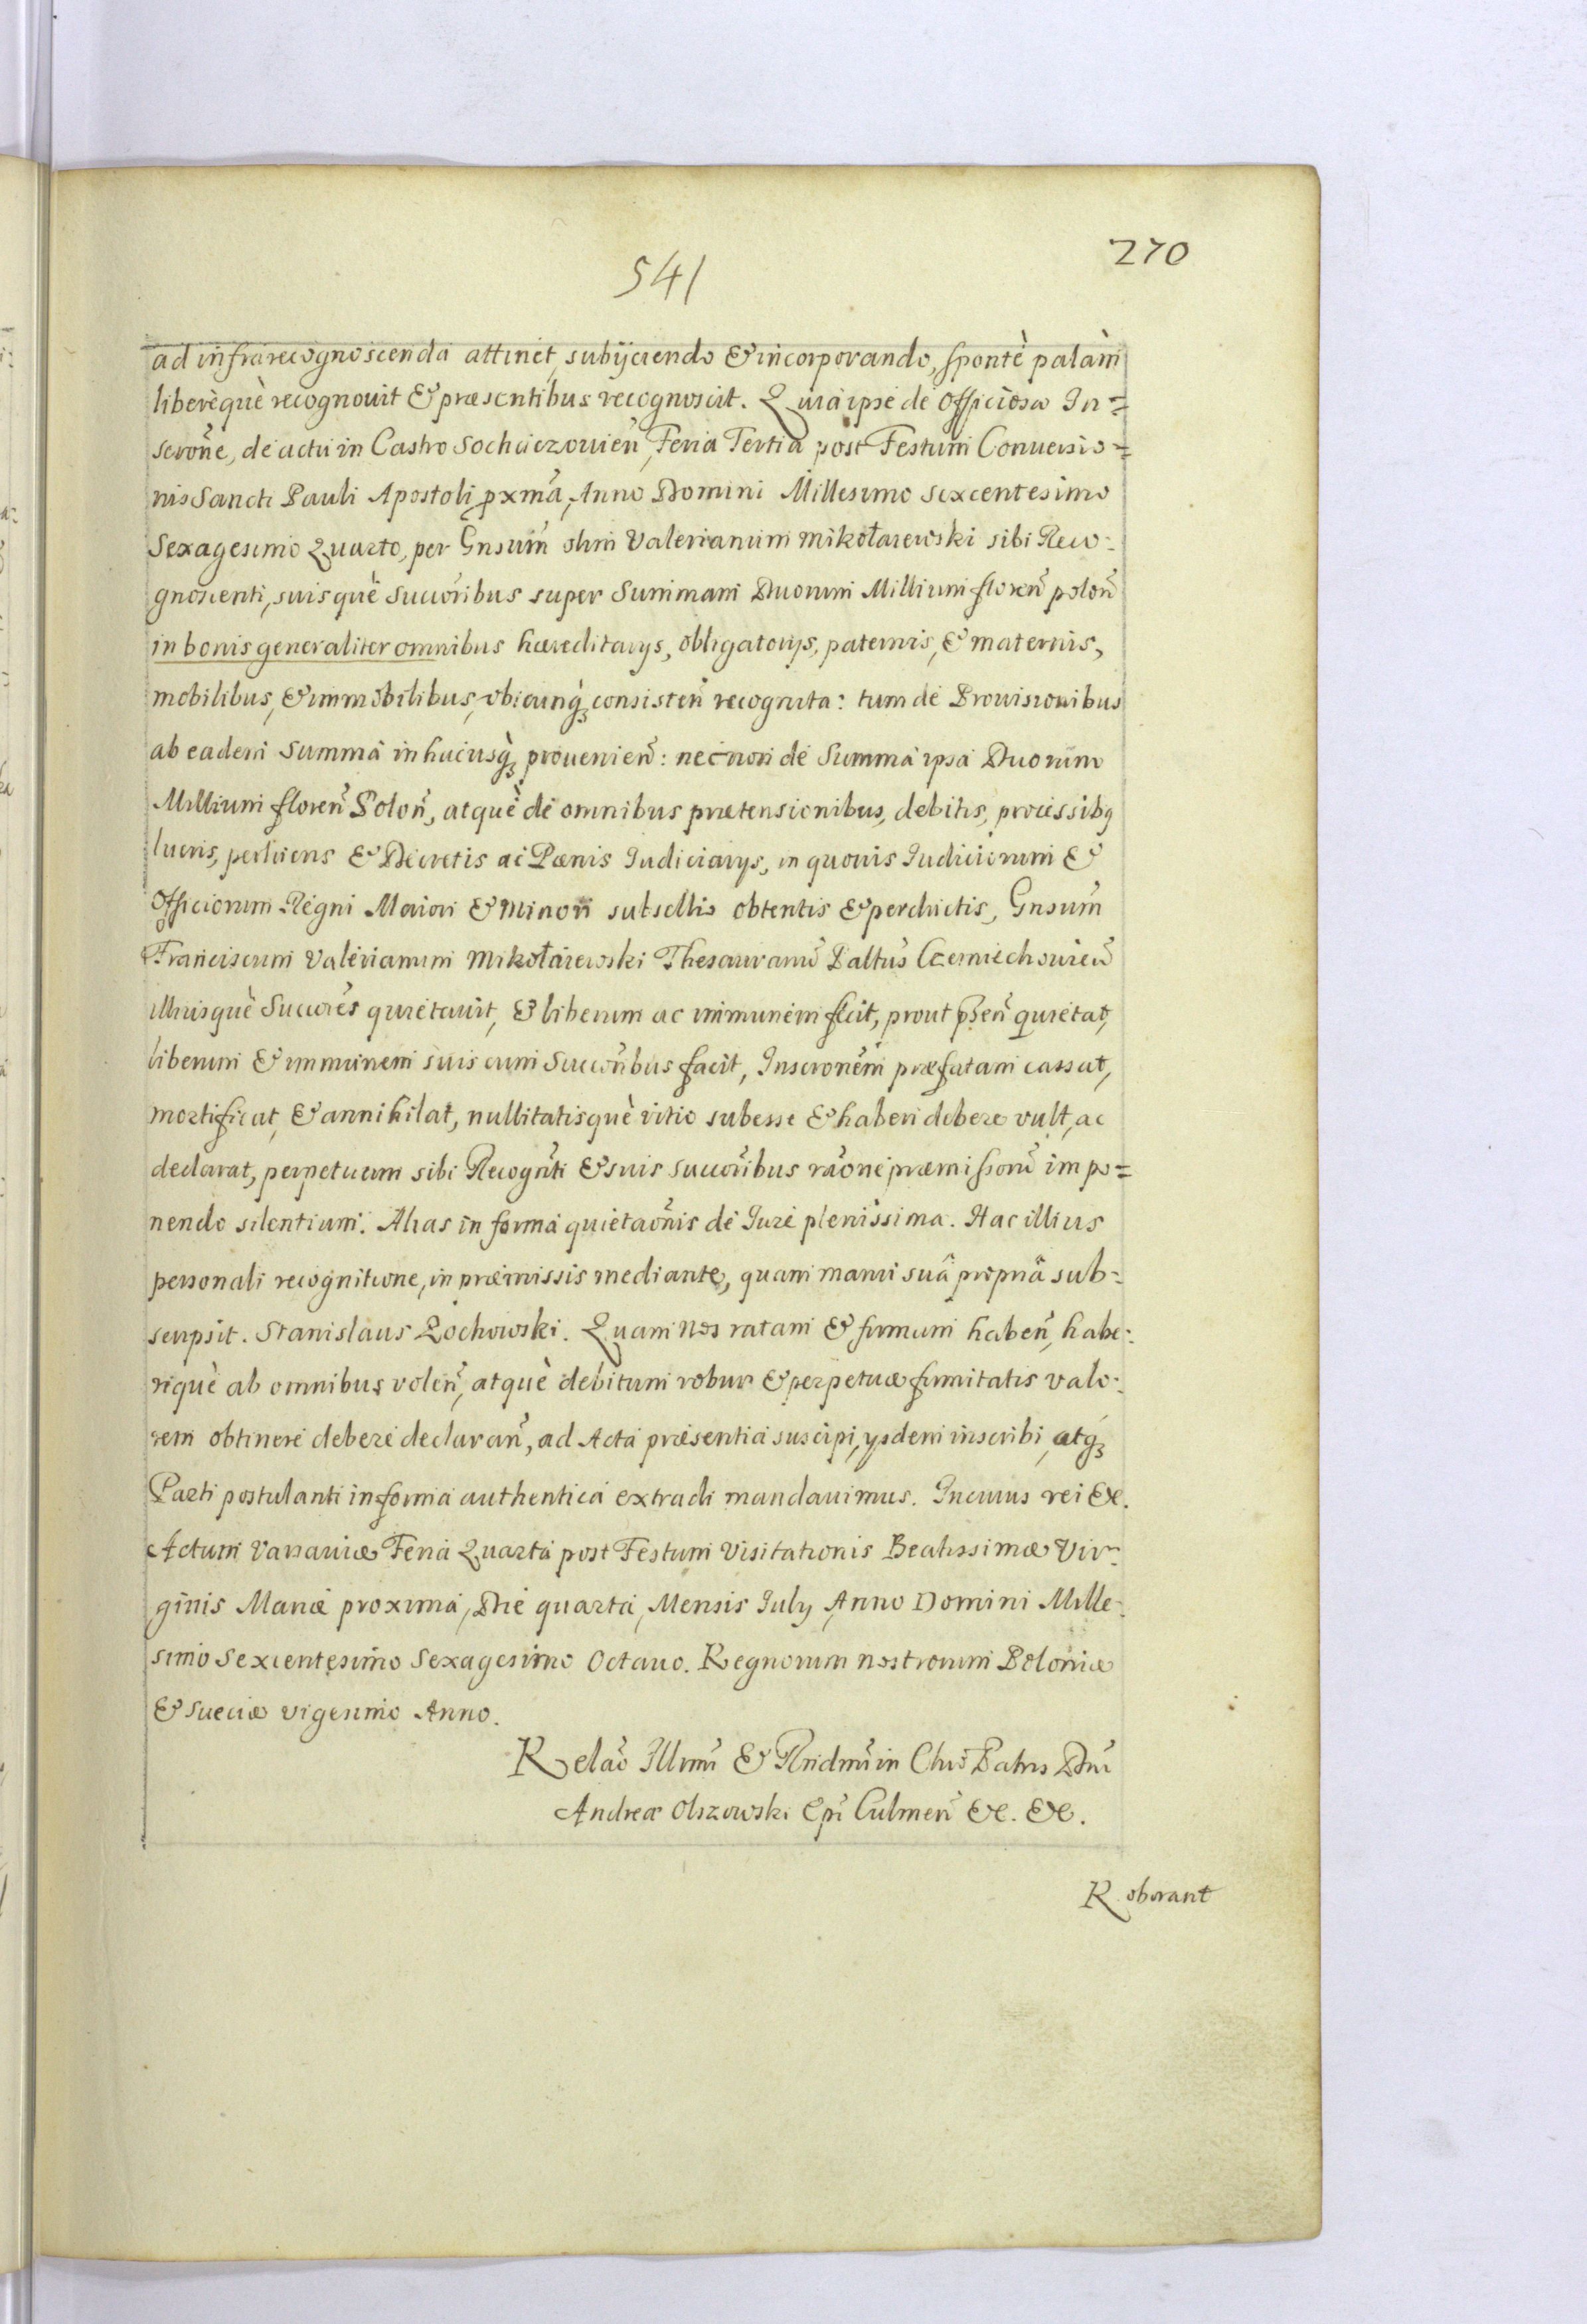 270
541
ad infrarecognoscenda attinet, subijciendo & incorporando, spontè palàm
liberèquè recognouit & præsentibus recognoscit. Quia ipse de Officiosa In=
scrōne, de actu in Castro Sochaczouien̄, Feria Tertia post Festum Conuersio=
nis Sancti Pauli Apostoli pxmā, Anno Domini Millesimo Sexcentesimo
Sexagesimo Quarto, per Gnsum olim Valerianum Mikołaiewski sibi Reco-
gnoscenti, suisquè Succōribus super Summam Duorum Millium floren̄ polon̄
in bonis generaliter omnibus hæreditarys, obligatorys, paternis, & maternis,
mobilibus, & immobilibus, vbicunq́ȝ consisten̄ recognita: tum de Prouisionibus
ab eadem Summâ in hucusq́ȝ prouenien̄: nec non de Summa ipsa Duorum
Millium floren̄ Polon̄, atquè de omnibus prætensionibus, debitis, processibȝ
lucris, perlucris & Decretis ac Pœnis Iudiciarys, in quouis Iudiciorum &
Officiorum Regni Maiori & Minori subsellio obtentis & perductis, Gnsum
Franciscum Valerianum Mikołaiewski Thesaurarium Paltus Czerniechouien̄
illiusquè Succōres quietauit, & liberum ac immunem fecit, prout pn̄sen̄ quietat,
liberum & immunem suis cum Succōribus facit, Inscrōnem præfatam cassat,
mortificat, & annihilat, nullitatisquè vitio subesse & haberi debere vult, ac
declarat, perpetuum sibi Recogn̄ti & suis Succōribus rāone præmissorū impo=
nendo silentium. Alias in forma quietaōnis de Iure plenissima. Hac illius
personali recognitione, in præmissis mediante, quam manu suâ propriâ sub-
scripsit. Stanislaus Zochowski. Quam Nos ratam & firmam haben̄, habe-
riquè ab omnibus volen̄, atquè debitum robur & perpetuæ firmitatis valo-
rem obtinere debere declaran̄, ad Acta præsentia suscipi, ysdem inscribi, atq́ȝ
Parti postulanti in forma authentica extradi mandauimus. In cuius rei &c.
Actum Varsauiæ Feria Quarta post Festum Visitationis Beatissimæ Vir-
ginis Mariæ proxima, Die quarta, Mensis July Anno Domini Mille-
simo Sexcentesimo Sexagesimo Octauo. Regnorum nostrorum Poloniæ
& Sueciæ vigesimo Anno.
Relāo Illmi & Rndmi in Chrō Patris Dni
Andreæ Olszowski Epi Culmen̄ &c. &c.
Roborant